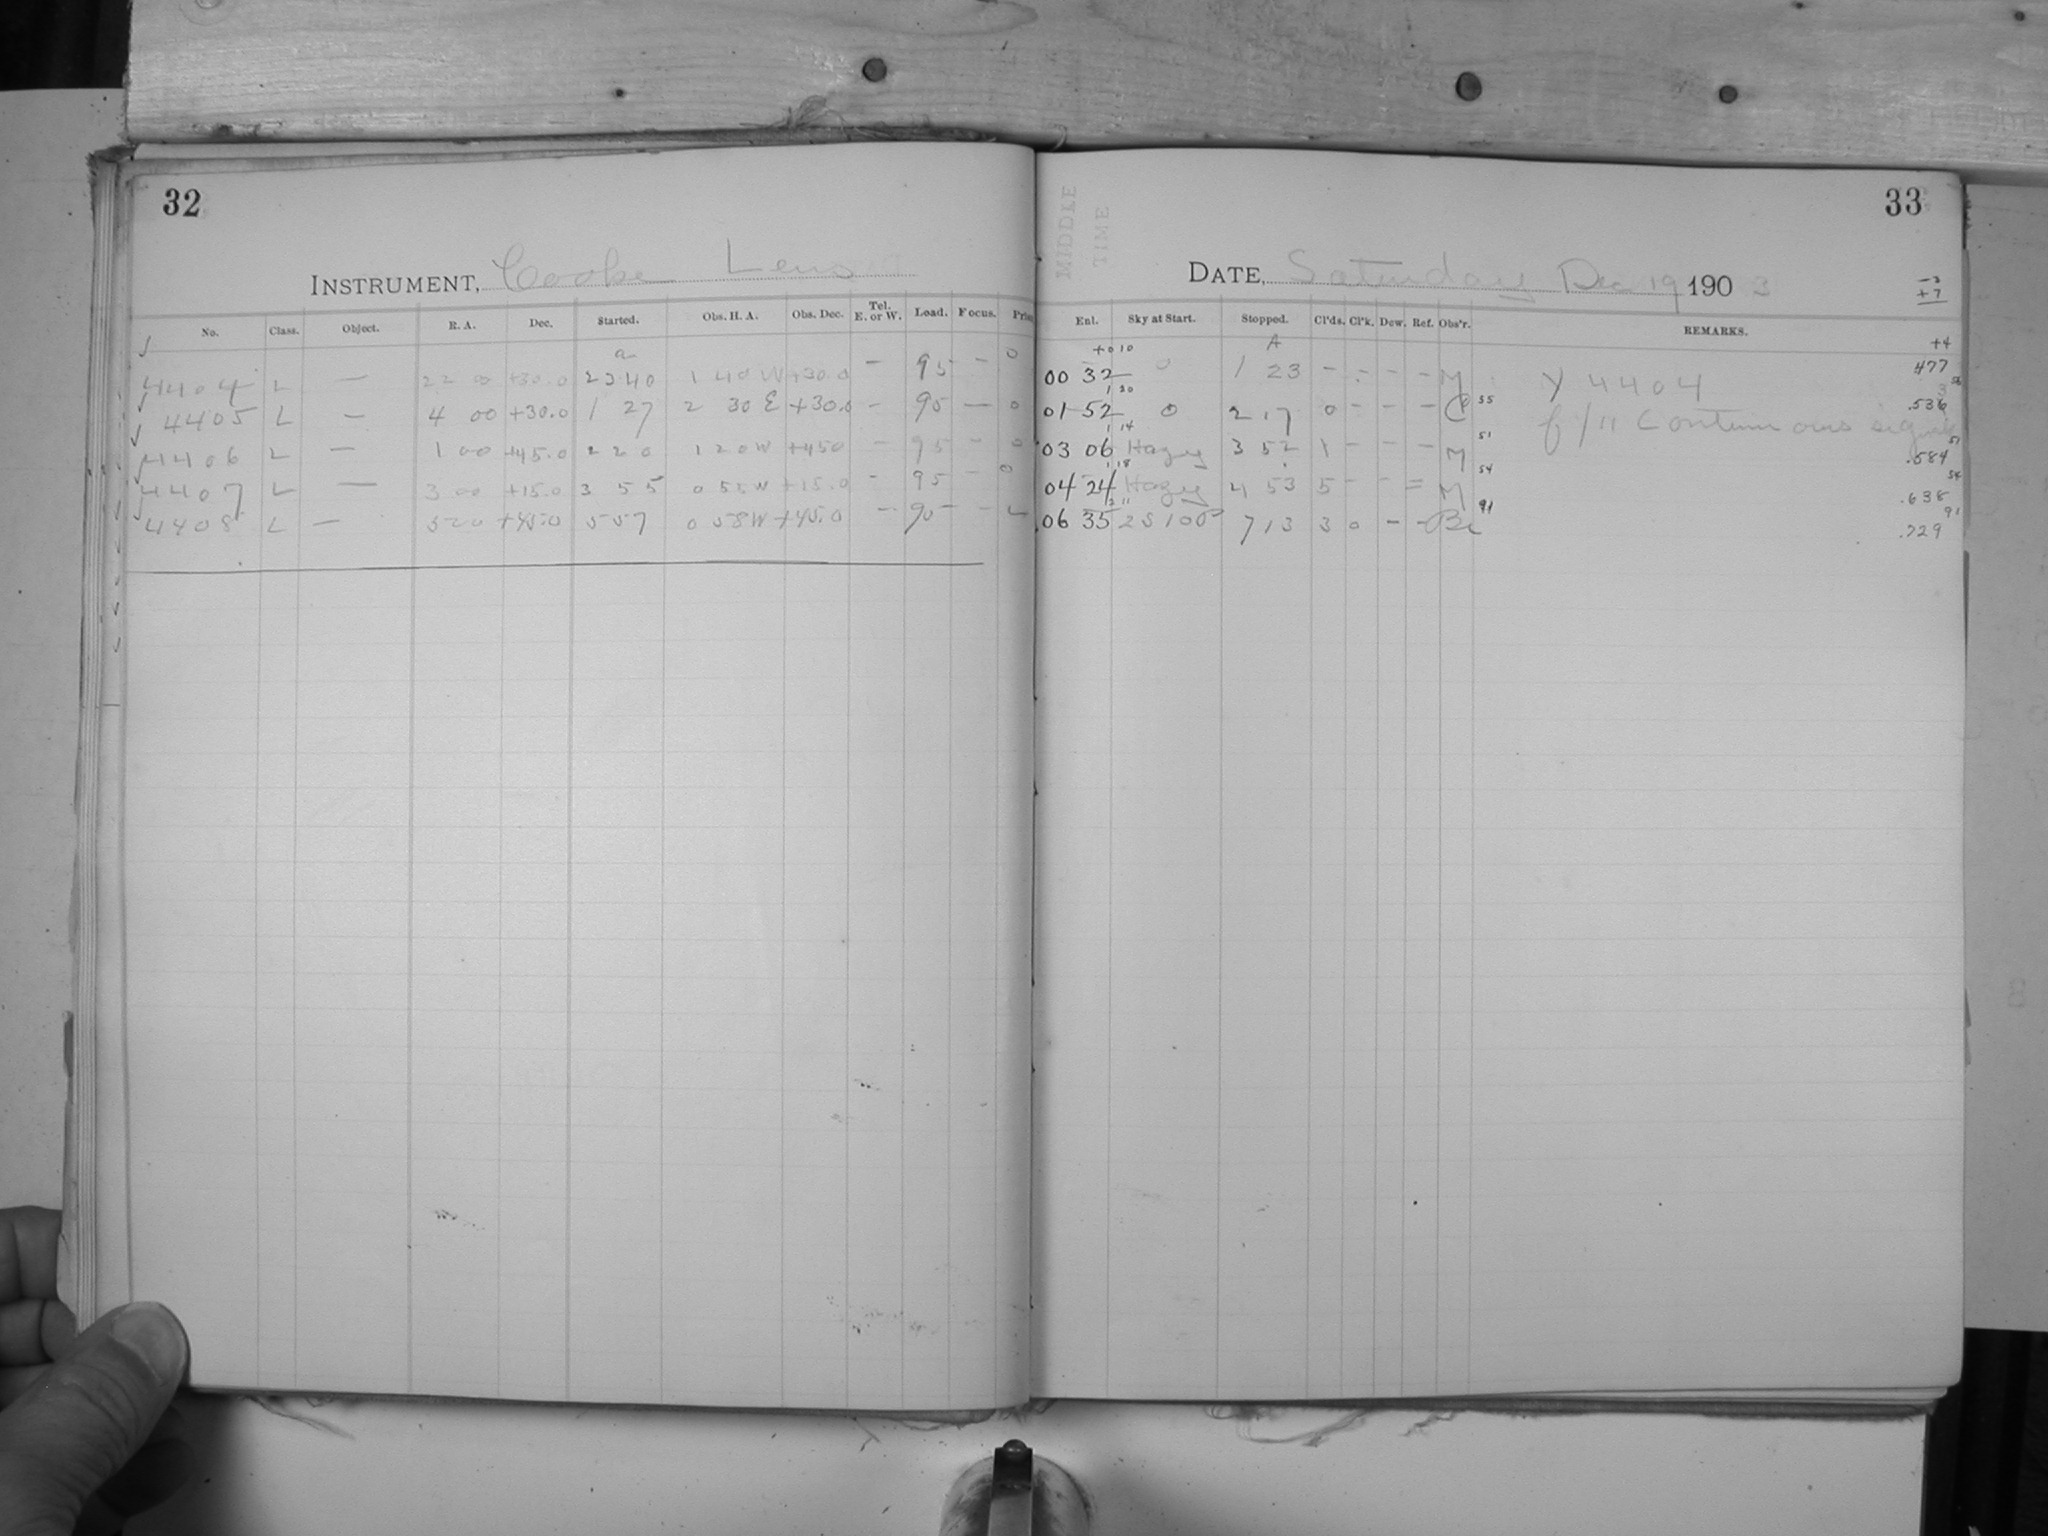 32
INSTRUMENT, Cooke Lens
No. Class. Object. R. A. Dec. Started. Obs. H. A. Obs. Dec. Tel. E. or W. Load. Focus.
a
4404 L — 22 00 +30.0 23 40 1 40 W +30.0 — 95 — 0
4405 L — 4 00 +30.0 1 27 2 30 E +30.0 — 95 — 0
4406 L — 1 00 +45.0 2 20 1 20 W +450 — 95 — 0
4407 L — 3 00 +15.0 3 55 0 55 W +15.0 — 95 — 0
4408 L — 5 20 +45.0 5 57 0 58 W +45.0 — 95 — —
33
MIDDLE
TIME
DATE, Saturday Dec 19 1903
-3
+7
Enl. Sky at Start. Stopped. Cl'ds. Cl'k. Dew. Ref. Obs'r. REMARKS.
+0 10 A +4
00 32 0 1 23 — — — — M Y 4404 477
1 20
01 52 0 2 17 0 — — — 55 f/11 Continuous signals .536
1 14 51
03 06 Hazy 3 52 1 — — — M .584
1 18 54
04 24 Hazy 4 53 5 — — = M .638
2 11 91
06 35 2S100° 7 13 3 0 — — .729